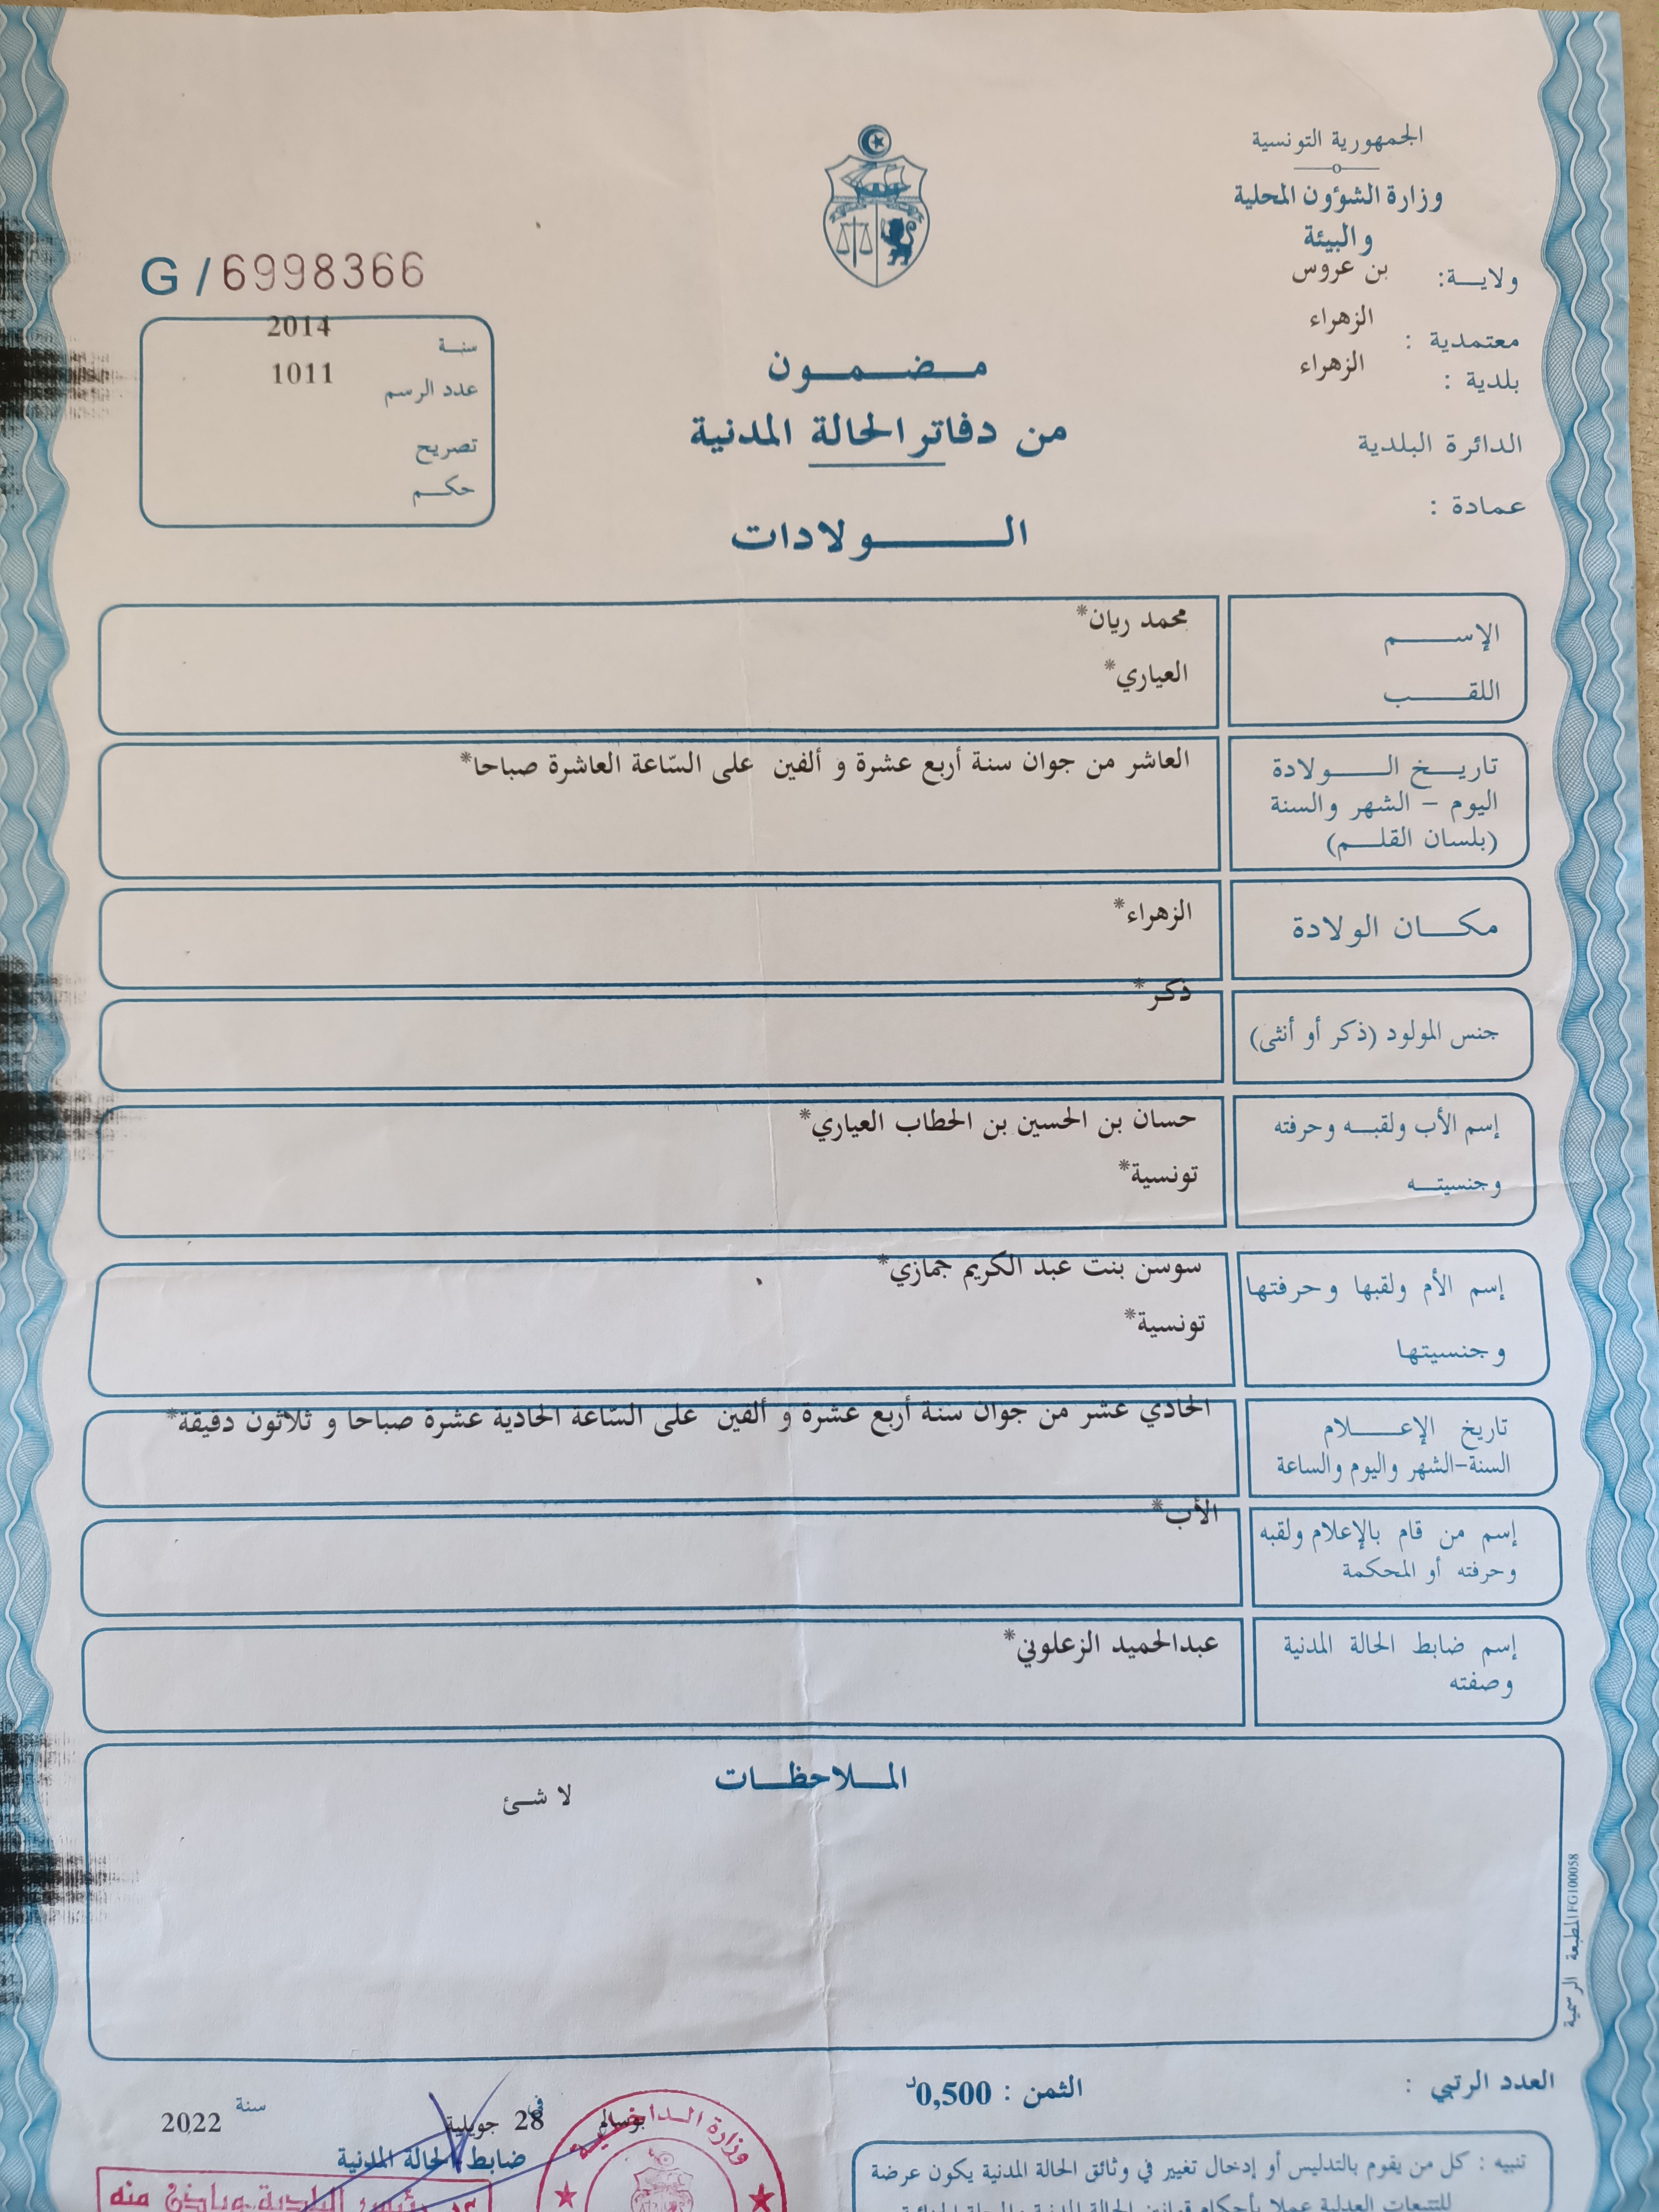 الجمهورية التونسية
وزارة الشؤون المحلية
والبيئة
ولاية: بن عروس
معتمدية : الزهراء
بلدية : الزهراء
الدائرة البلدية
عمادة :
G / 6998366
سنة 2014
عدد الرسم 1011
تصريح
حكم
مضمون
من دفاتر الحالة المدنية
الولادات
الإسم محمد ريان*
اللقب العياري*
تاريخ الولادة العاشر من جوان سنة أربع عشرة و ألفين على السّاعة العاشرة صباحا*
اليوم - الشهر والسنة
(بلسان القلم)
مكان الولادة الزهراء*
جنس المولود (ذكر أو أنثى) ذكر*
إسم الأب ولقبه وحرفته حسان بن الحسين بن الحطاب العياري*
وجنسيته تونسية*
إسم الأم ولقبها وحرفتها سوسن بنت عبد الكريم جمازي*
وجنسيتها تونسية*
تاريخ الإعلام الحادي عشر من جوان سنة أربع عشرة و ألفين على السّاعة الحادية عشرة صباحا و ثلاثون دقيقة*
السنة-الشهر واليوم والساعة
إسم من قام بالإعلام ولقبه الأب*
وحرفته أو المحكمة
إسم ضابط الحالة المدنية عبدالحميد الزعلوني*
وصفته
الملاحظات
لا شئ
المطبعة الرسمية FG100058
العدد الرتبي :
الثمن : 0,500د
بوسالم في 28 جويلية سنة 2022
ضابط الحالة المدنية
وزارة الداخلية
عن رئيس البلدية وبإذن منه
تنبيه : كل من يقوم بالتدليس أو إدخال تغيير في وثائق الحالة المدنية يكون عرضة
للتتبعات العدلية عملا بأحكام قوانين الحالة المدنية والمجلة الجزائية